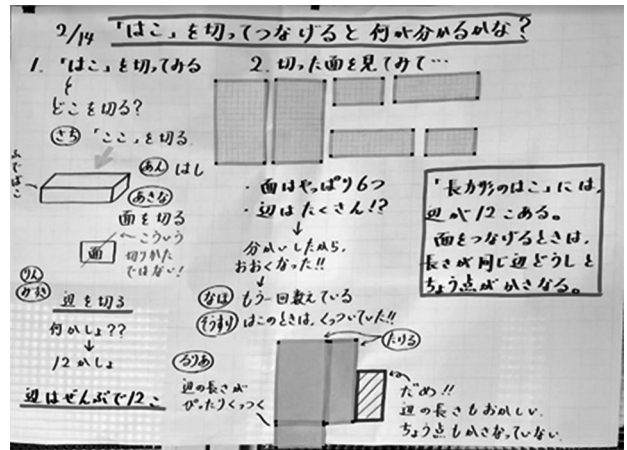 2/14 「はこ」を切ってつなげると何が分かるかな?
1. 「はこ」を切ってみる
と
どこを切る?
さち 「ここ」を切る
ふでばこ
あん はし
あきな
面を切る
面
こういう
切りかた
ではない!
りん
みずき
辺を切る
何かしょ??
↓
12かしょ
辺はぜんぶで12こ
2. 切った面を見てみて…
・面はやっぱり6つ
・辺はたくさん!?
↓
分かいしたから、
おおくなった!!
なほ もう一回数えている
はこのときは、くっついていた!!
たりる
るりあ
辺の長さが
ぴったりくっつく
だめ!!
辺の長さもおかしい
ちょう点もかさなっていない
「長方形のはこ」には、
辺が12こある。
面をつなげるときは、
長さが同じ辺どうしと
ちょう点がかさなる。